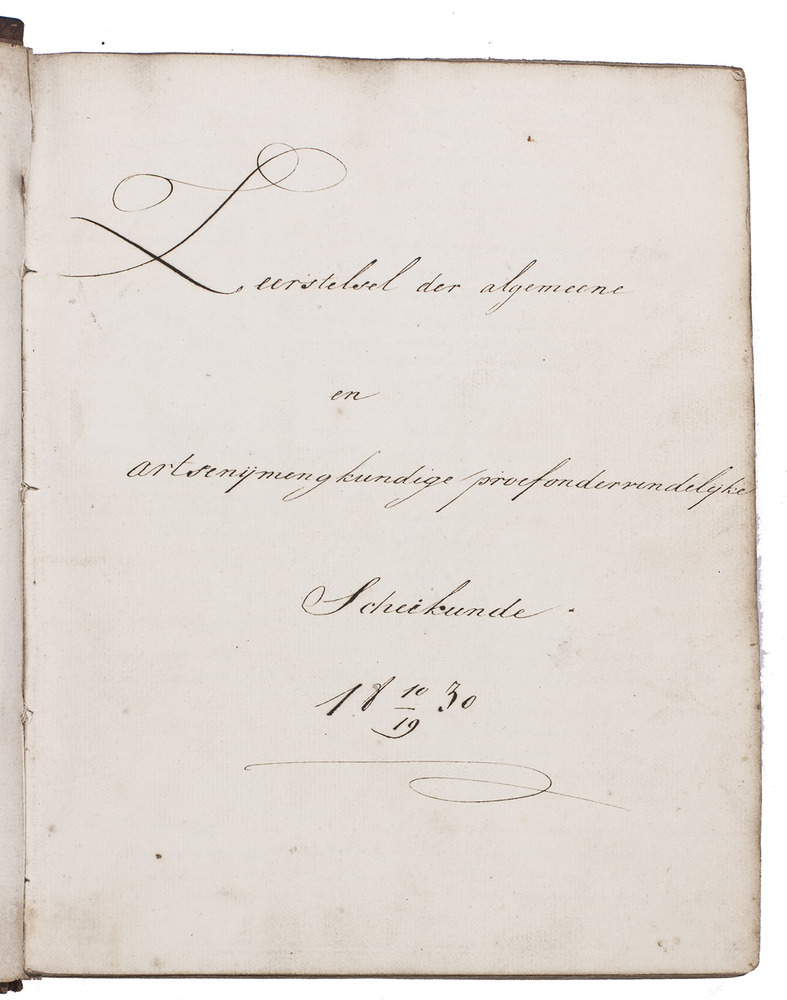 Leerstelsel der algemeene
en
artsenijmengkundige proefondervindelijke
Scheikunde
18 10/19 30